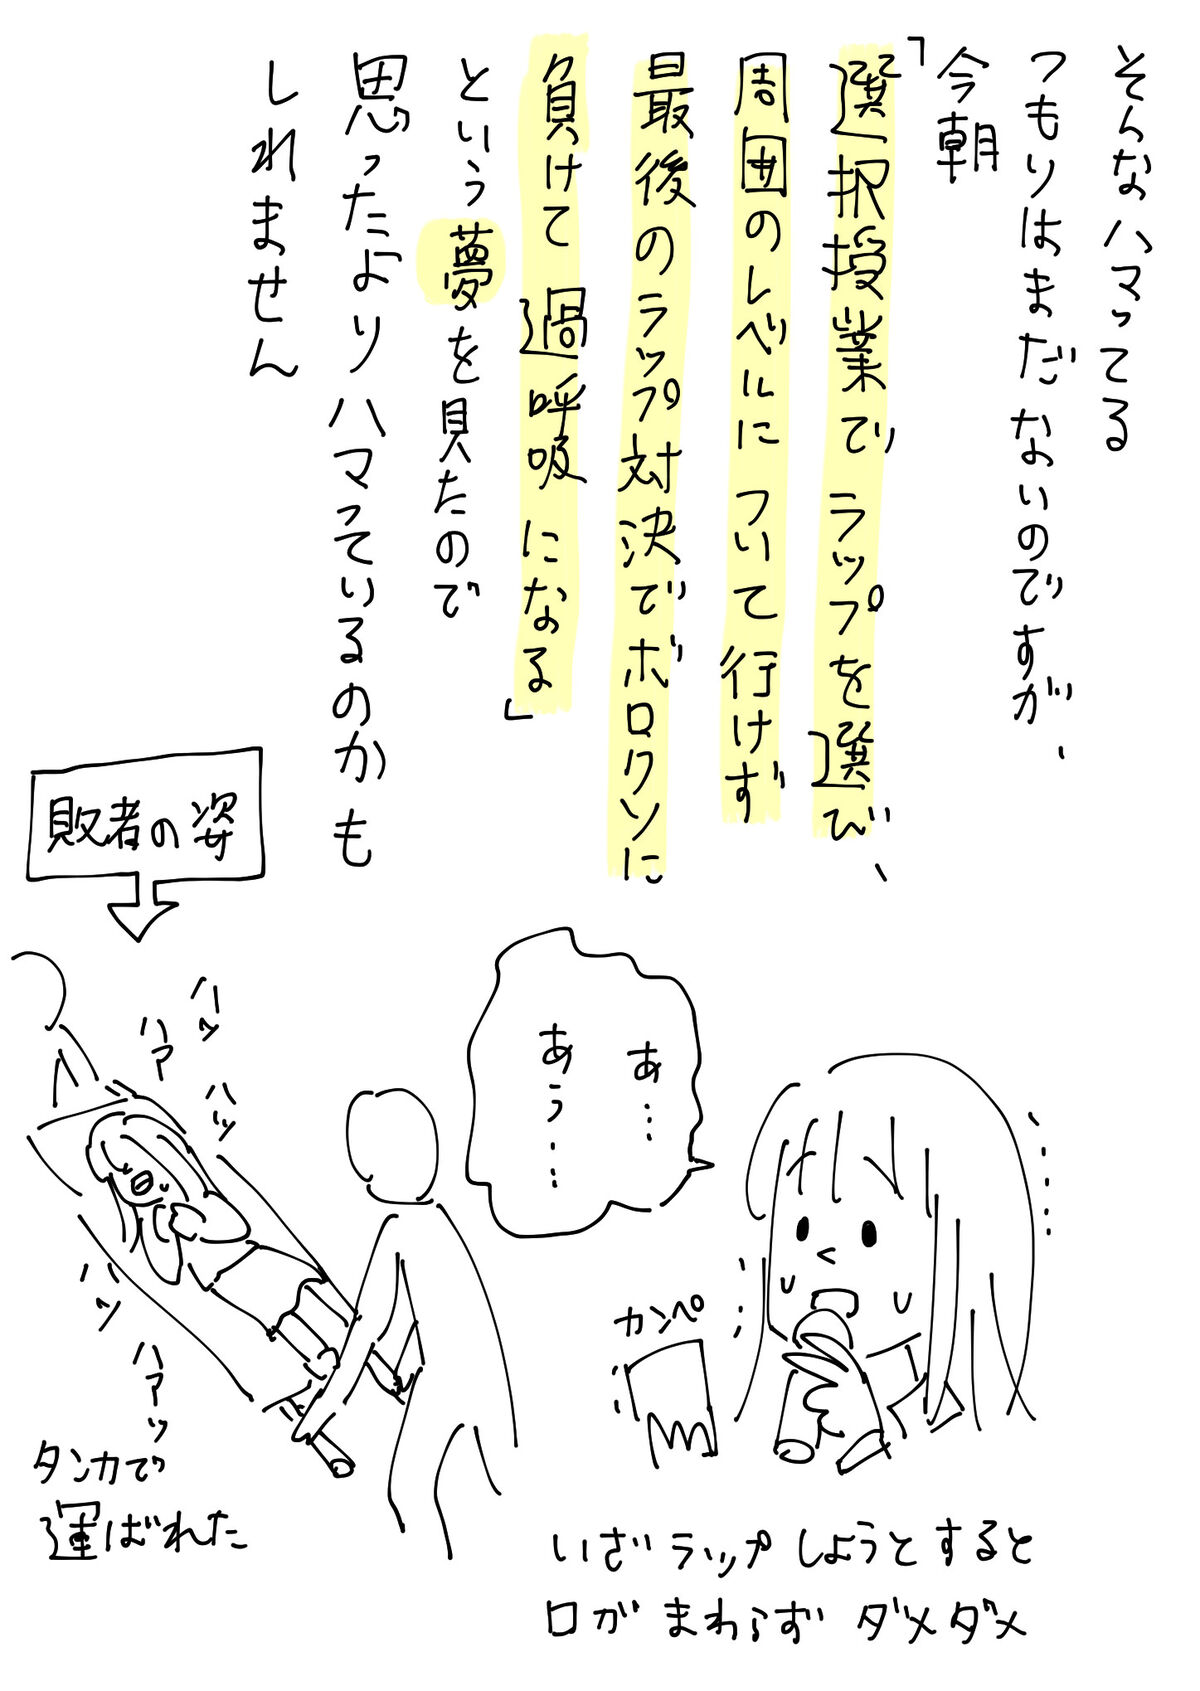 そんなハマってる
つもりはまだないのですが、
今朝
「選択授業でラップを選び、
周囲のレベルについて行けず
最後のラップ対決でボロクソに
負けて過呼吸になる」
という夢を見たので
思ったよりハマっているのかも
しれません
あ…
あう…
カンペ
いざラップしようとすると
口がまわらずダメダメ
敗者の姿
ハッ
ハァ
ハッ
ハッ
ハァッ
タンカで
運ばれた